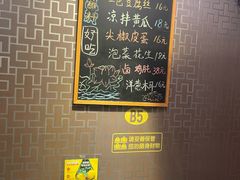 三色豆腐丝 16元
凉拌黄瓜 18元
好吃
尖椒皮蛋 16元
泡菜花生 19元
卤鸡胗 38元
洋葱木耳 16元
B5
请妥善保管
您的随身财物